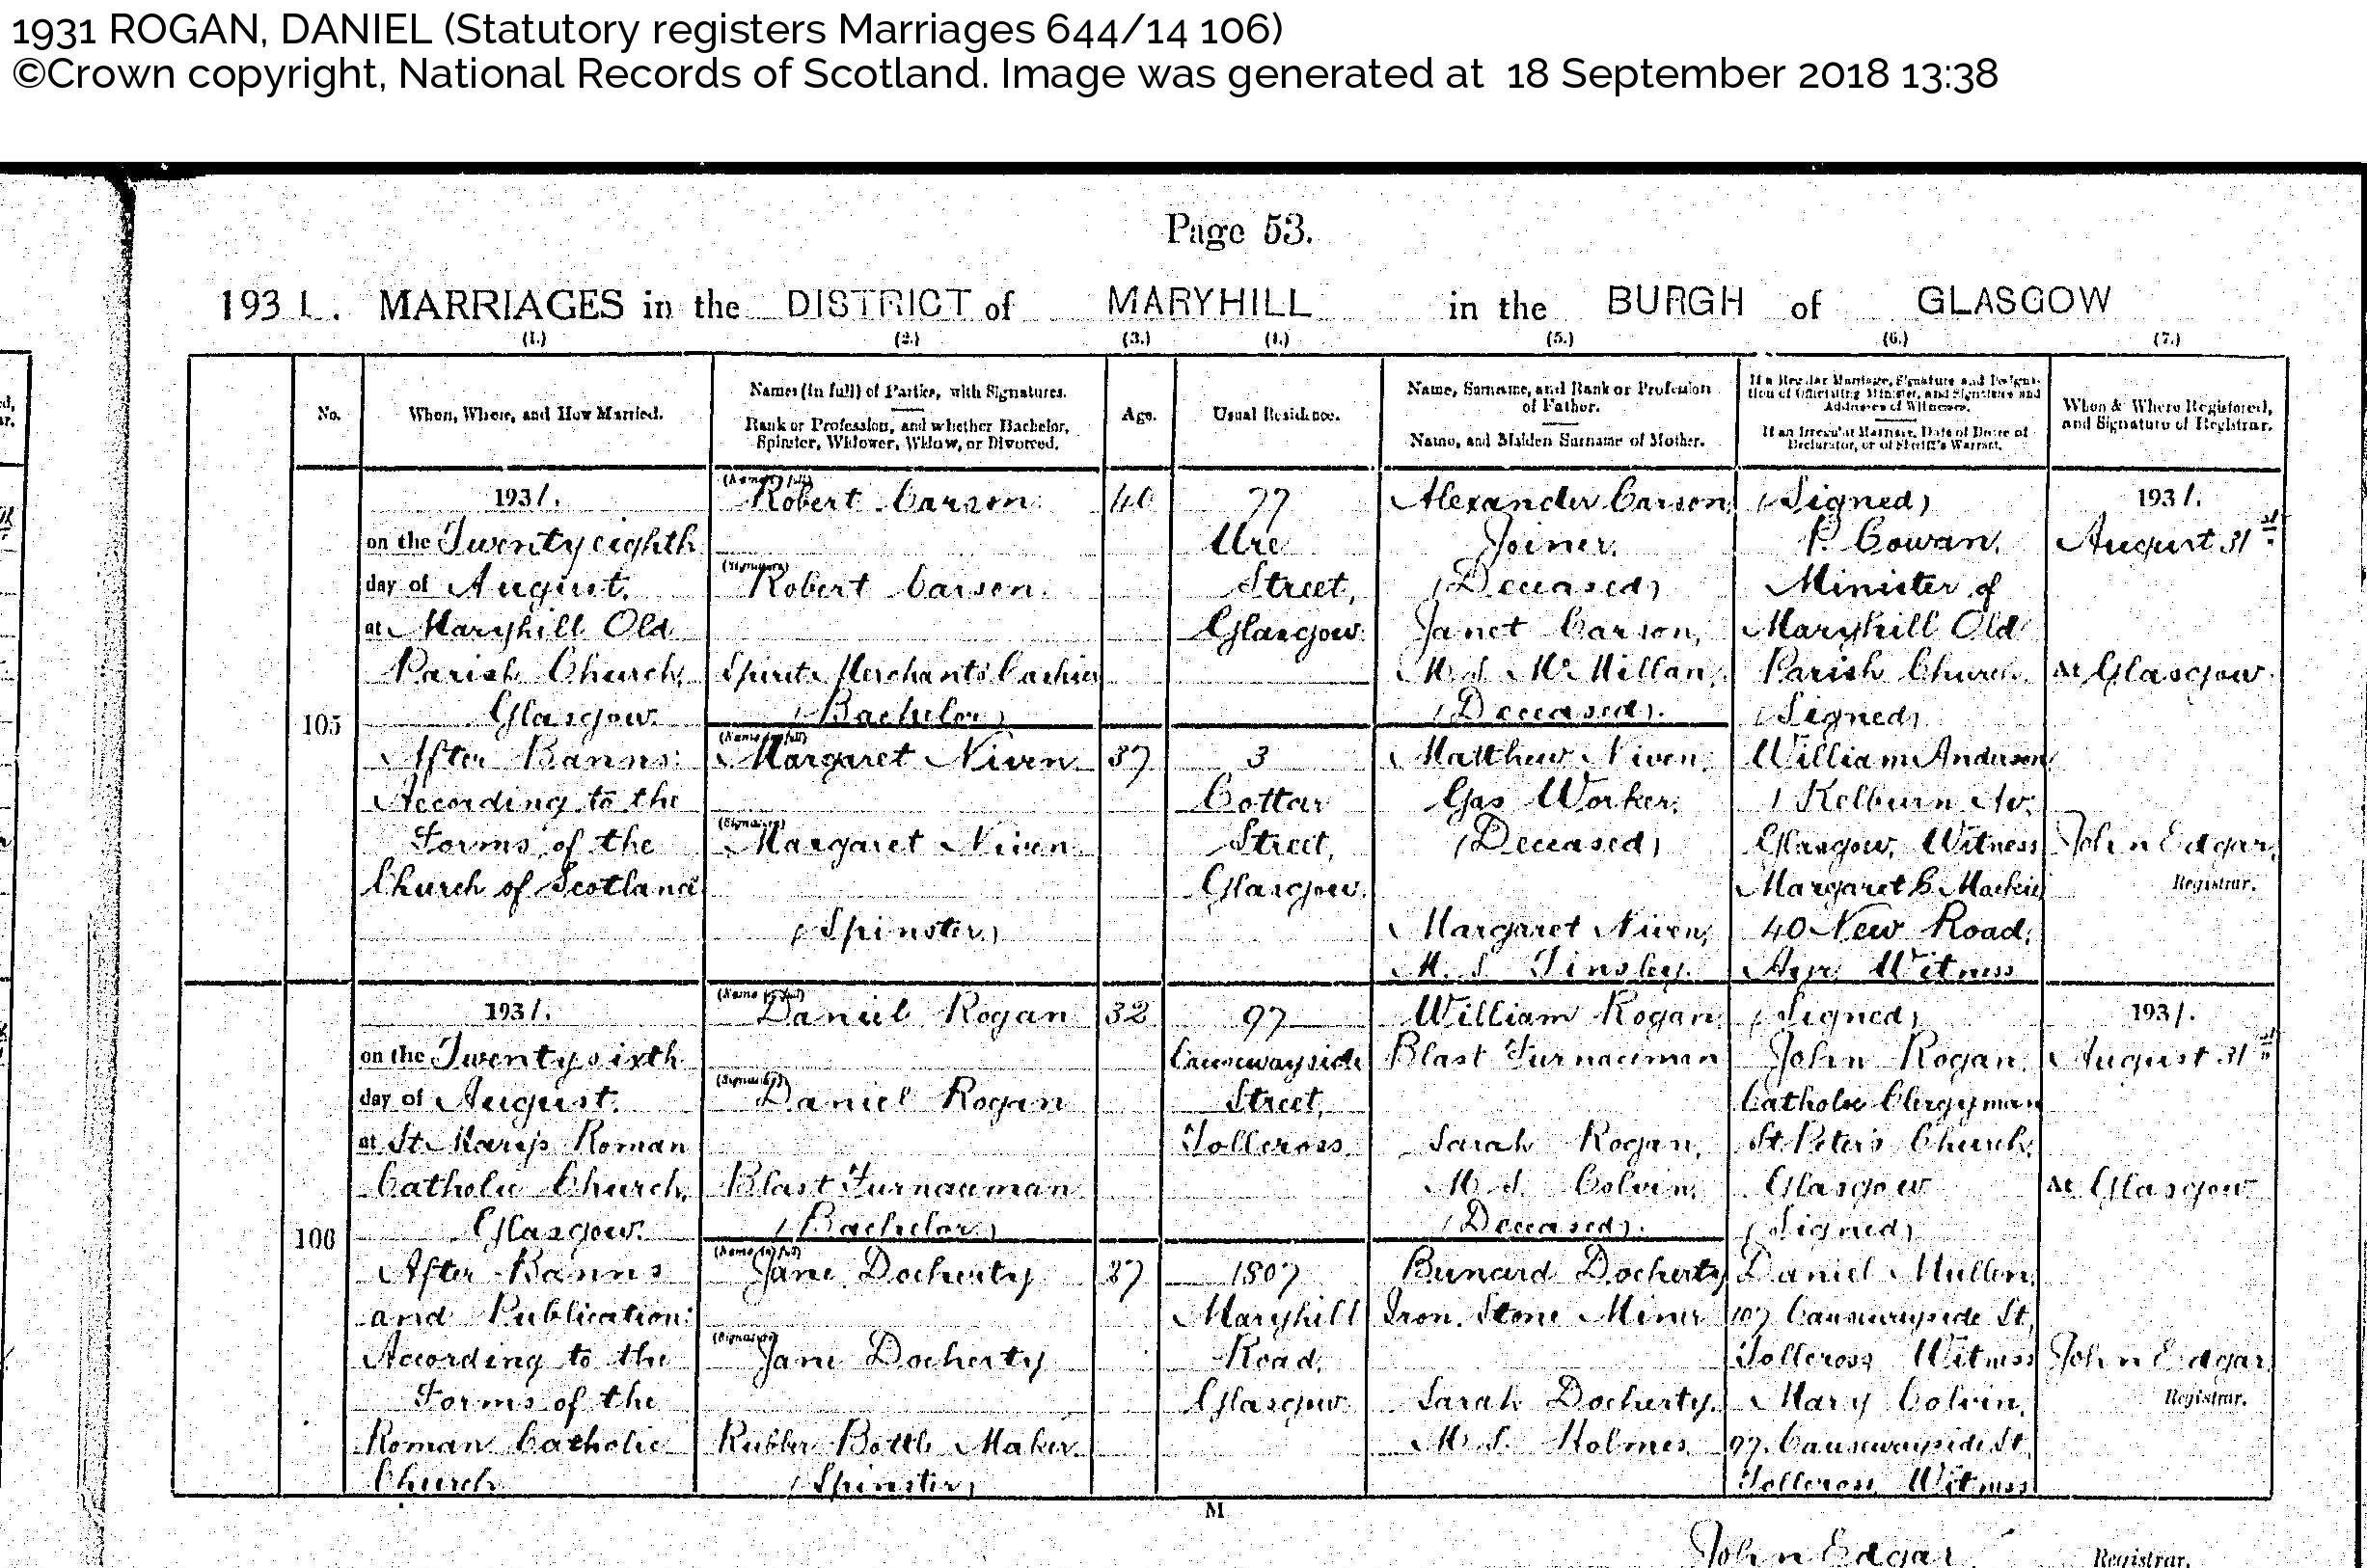 1931 ROGAN, DANIEL (Statutory registers Marriages 644/14 106)
©Crown copyright, National Records of Scotland. Image was generated at 18 September 2018 13:38
Page 53.
1931. MARRIAGES in the DISTRICT of MARYHILL in the BURGH of GLASGOW
(1.) (2.) (3.) (4.) (5.) (6.) (7.)
No.
When, Where, and How Married.
Names (in full) of Parties, with Signatures.
Rank or Profession, and whether Bachelor,
Spinster, Widower, Widow, or Divorced.
Age.
Usual Residence.
Name, Surname, and Rank or Profession
of Father.
Name, and Maiden Surname of Mother.
If a Regular Marriage, Signature and Designa-
tion of Officiating Minister, and Signature and
Addresses of Witnesses.
If an Irregular Marriage, Date of Decree of
Declarator, or of Sheriff's Warrant.
When & Where Registered,
and Signature of Registrar.
105
1931.
on the Twenty eighth
day of August.
at Maryhill Old
Parish Church,
Glasgow.
After Banns:
According to the
Forms of the
Church of Scotland
(Name in full)
Robert Carson
(Signature)
Robert Carson.
Spirit Merchant's Cashier
(Bachelor)
40
77
Ure
Street,
Glasgow.
Alexander Carson,
Joiner.
(Deceased)
Janet Carson,
M.S. McMillan,
(Deceased).
(Name in full)
Margaret Niven.
(Signature)
Margaret Niven
(Spinster)
37
3
Cottar
Street,
Glasgow.
Matthew Niven,
Gas Worker,
(Deceased)
Margaret Niven,
M.S. Tinsley.
(Signed)
P. Cowan.
Minister of
Maryhill Old
Parish Church.
(Signed)
William Anderson
1 Kelburn Av.
Glasgow, Witness
Margaret C. Mackie
40 New Road,
Ayr, Witness
1931.
August 31st
At Glasgow.
John Edgar,
Registrar.
106
1931.
on the Twenty sixth
day of August.
at St. Mary's Roman
Catholic Church,
Glasgow.
After Banns
and Publication:
According to the
Forms of the
Roman Catholic
Church
(Name in full)
Daniel Rogan
(Signature)
Daniel Rogan
Blast Furnaceman
(Bachelor)
32
97
Causewayside
Street,
Tollcross.
William Rogan
Blast Furnaceman
Sarah Rogan,
M.S. Colvin,
(Deceased).
(Name in full)
Jane Docherty
(Signature)
Jane Docherty
Rubber Bottle Maker
(Spinster)
37
1807
Maryhill
Road,
Glasgow.
Bernard Docherty
Iron Stone Miner
Sarah Docherty,
M.S. Holmes.
(Signed)
John Rogan,
Catholic Clergyman
St. Peter's Church,
Glasgow
(Signed)
Daniel Mullen,
107 Causewayside St,
Tollcross Witness
Mary Colvin,
97, Causewayside St,
Tollcross Witness
1931.
August 31st
At Glasgow
John Edgar,
Registrar.
M
John Edgar
Registrar.